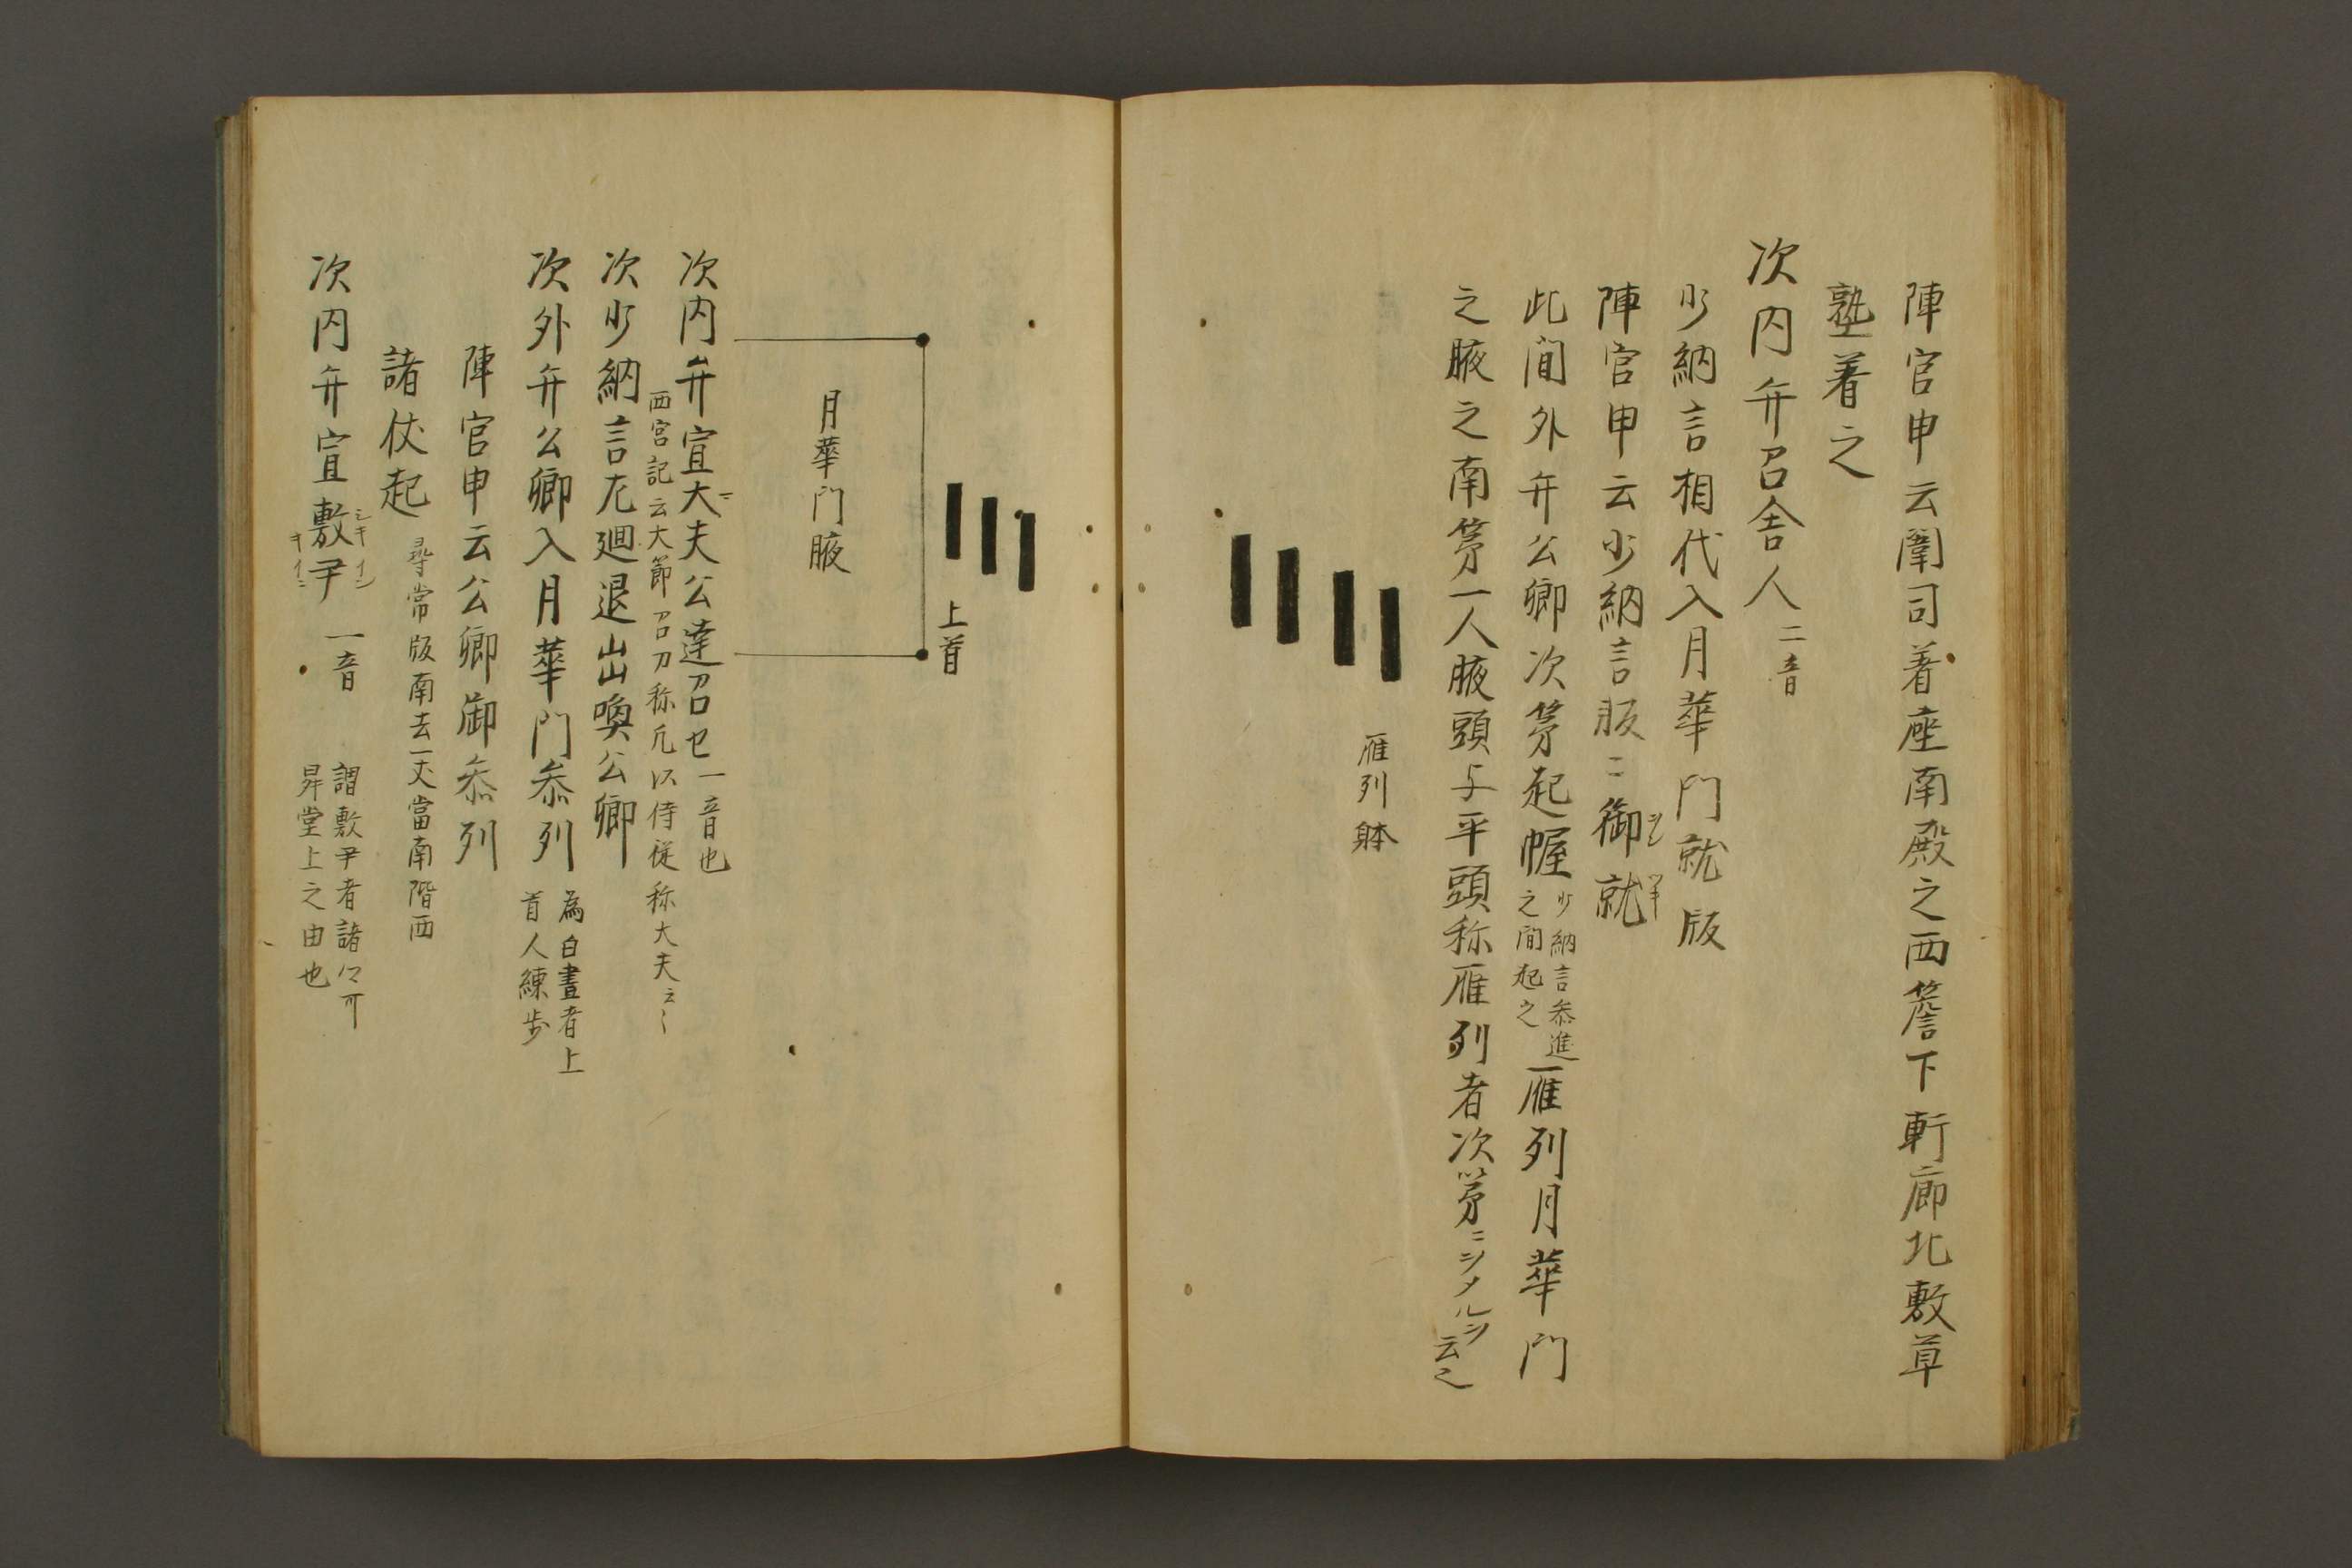 陣官申云闈司着座南殿之西簷下軒廊北敷草
塾着之
次内弁召舎人二音
少納言相代入月華門就版
陣官申云少納言版ニ御就
此間外弁公卿次苐起幄少納言叅進之間起之雁列月華門
之腋之南苐一人腋頭与平頭称雁列者次第ニシタルヲ云々
雁列躰
上首
月華門腋
次内弁宣大夫公達召セ一音也
西宮記云大節召刀称凡以侍従称大夫云々
次少納言左廻退出喚公卿
次外弁公卿入月華門叅列為白晝者上首人練歩
陣官申云公卿御叅列
諸仗起尋常版南去一丈當南階西
次内弁宣敷尹シキイン一音謂敷尹者諸々可昇堂上之由也